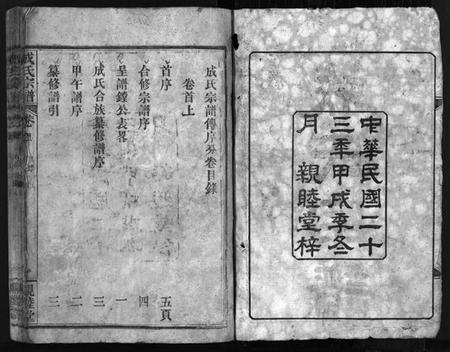 中華民國二十
三年甲戌季冬
月 親睦堂梓
成氏宗譜傳序分卷目錄
卷首上
首序 五頁
合修宗譜序 四
呈譜鏜公表畧 一
成氏合族纂修譜序 三
甲午譜序 二
纂修譜引 三
成氏宗譜
親睦堂